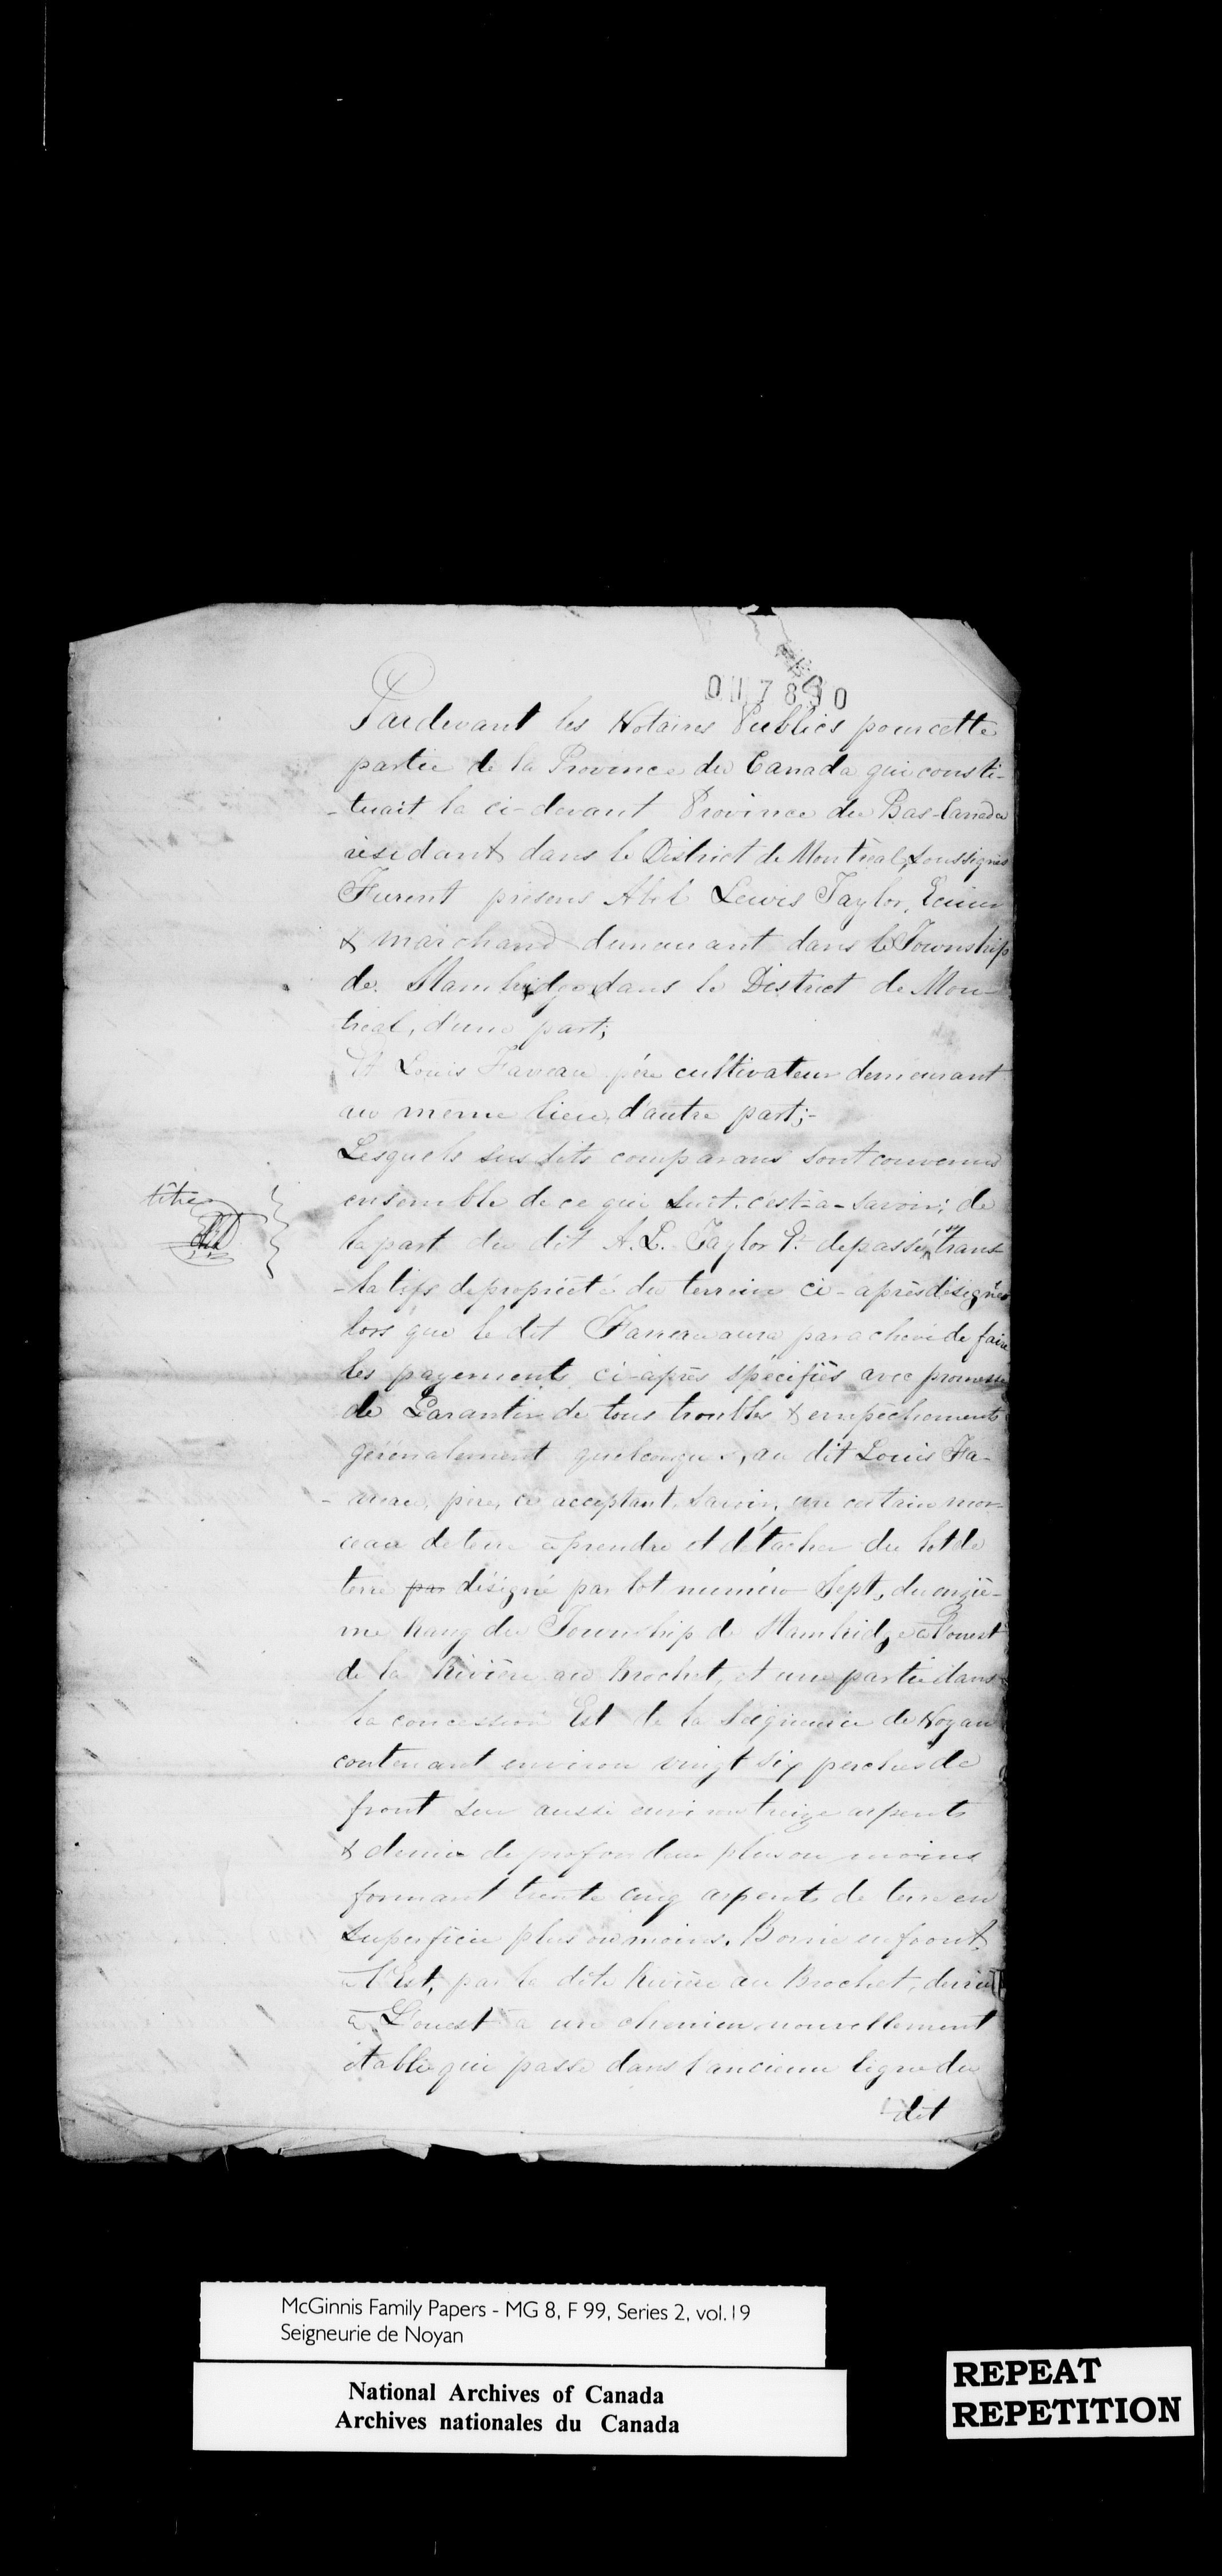 011 7890
Pardevant les Notaires Publics pour cette
partie de la Province du Canada qui consti-
-tuait la ci-devant Province du Bas-Canada
résidant dans le District de Montréal, soussignés
Furent présens Abel Lewis Taylor, Ecuier
& marchand demeurant dans le Township
de Stanbridge dans le District de Mon-
tréal, d'une part;
Et Louis Faneau père cultivateur demeurant
au meme lieu, d'autre part;-
Lesquels sus dits comparans sont convenus
ensemble de ce qui suit. c'est-à-savoir; de
titres
la part du dit A. L. Taylor de passer trans-
-latifs de propriété du terrein ci-après désigné
lors que le dit Faneau aura parachevé de faire
les payements ci-après spécifiés avec promesse
de Garantir de tous troubles & empêchements
généralement quelconques, au dit Louis Fa-
-neau, père, ce acceptant, Savoir, un certain mor-
ceau de terre à prendre et détacher du lot de
terre par désigné par lot numéro Sept, du onziè-
me Rang du Township de Stanbridge à l'ouest
de la Rivière au Brochet, et une partie dans
la concession Est de la Seigneurie de Noyan
contenant environ vingt six perches de
front sur aussi environ treize arpents
& demie de profondeur plus ou moins
formant trente cinq arpents de terre en
superficie plus ou moins. Borné en front
à l'Est, par la dite Rivière au Brochet, derrière
à L'ouest à un chemin nouvellement
établie qui passe dans l'ancienne ligne du
dit
McGinnis Family Papers - MG 8, F 99, Series 2, vol.19
Seigneurie de Noyan
National Archives of Canada
Archives nationales du Canada
REPEAT
REPETITION